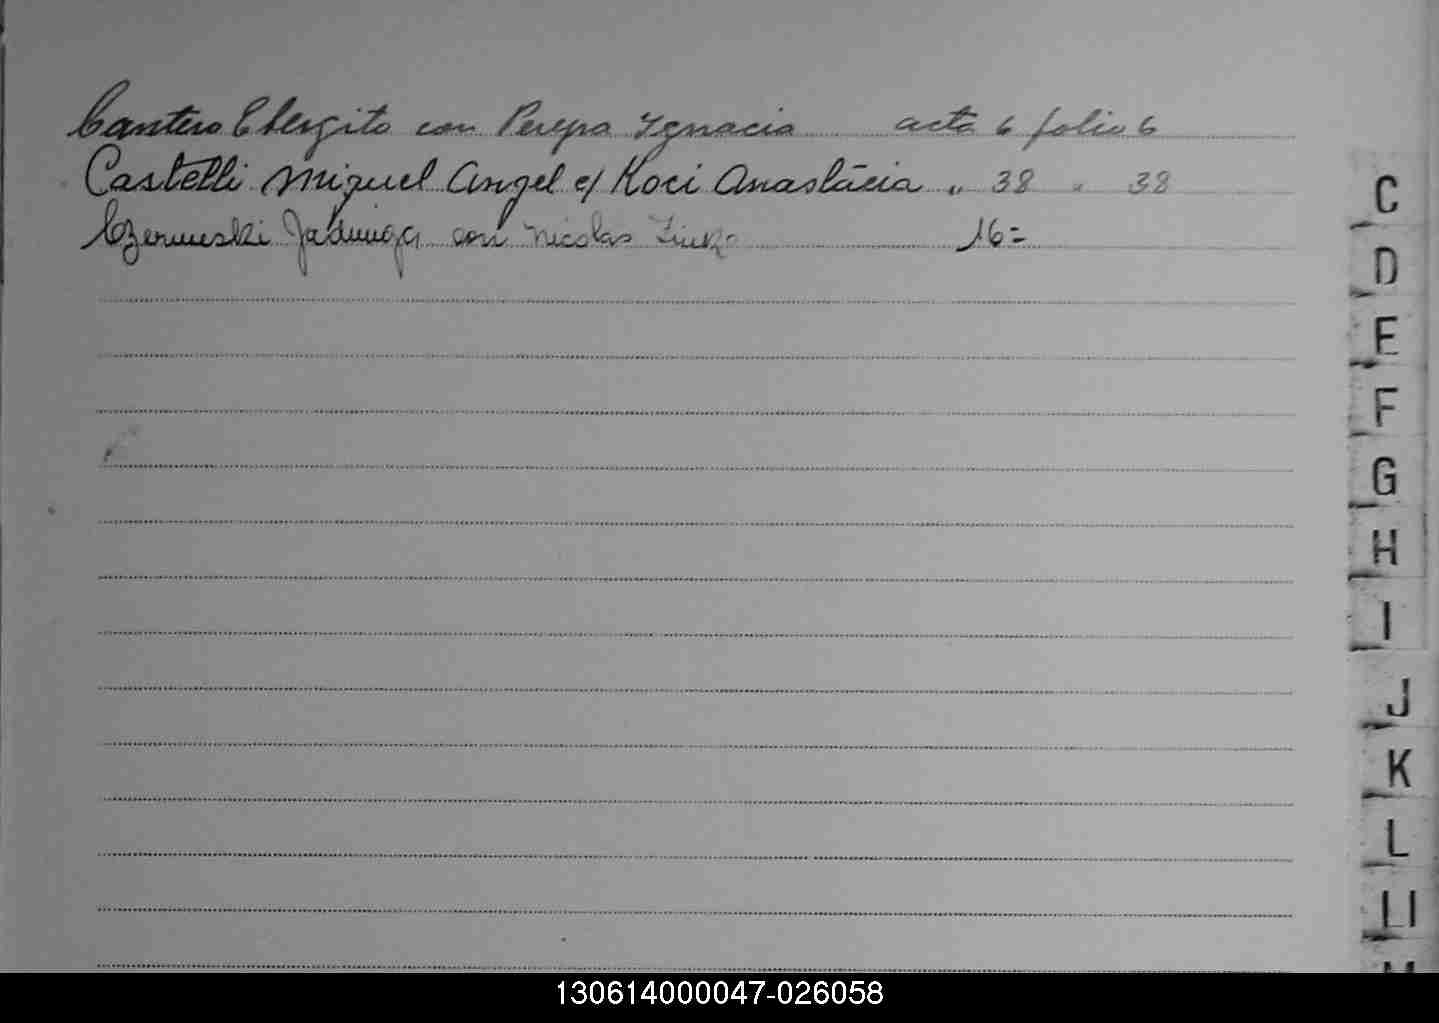 Cantero con Pereyra Ignacia acta 6 folio 6
Castelli Miguel Angel c/ Koci Anastácia " 38 " 38
con Nicolas 16=
C
D
E
F
G
H
I
J
K
L
Ll
M
130614000047-026058